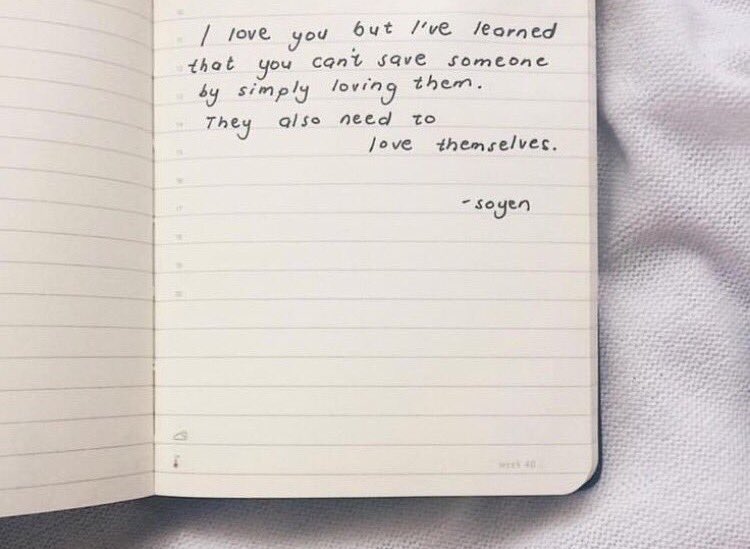 I love you but I've learned
that you can't save someone
by simply loving them.
They also need to
love themselves.
-soyen
week 40